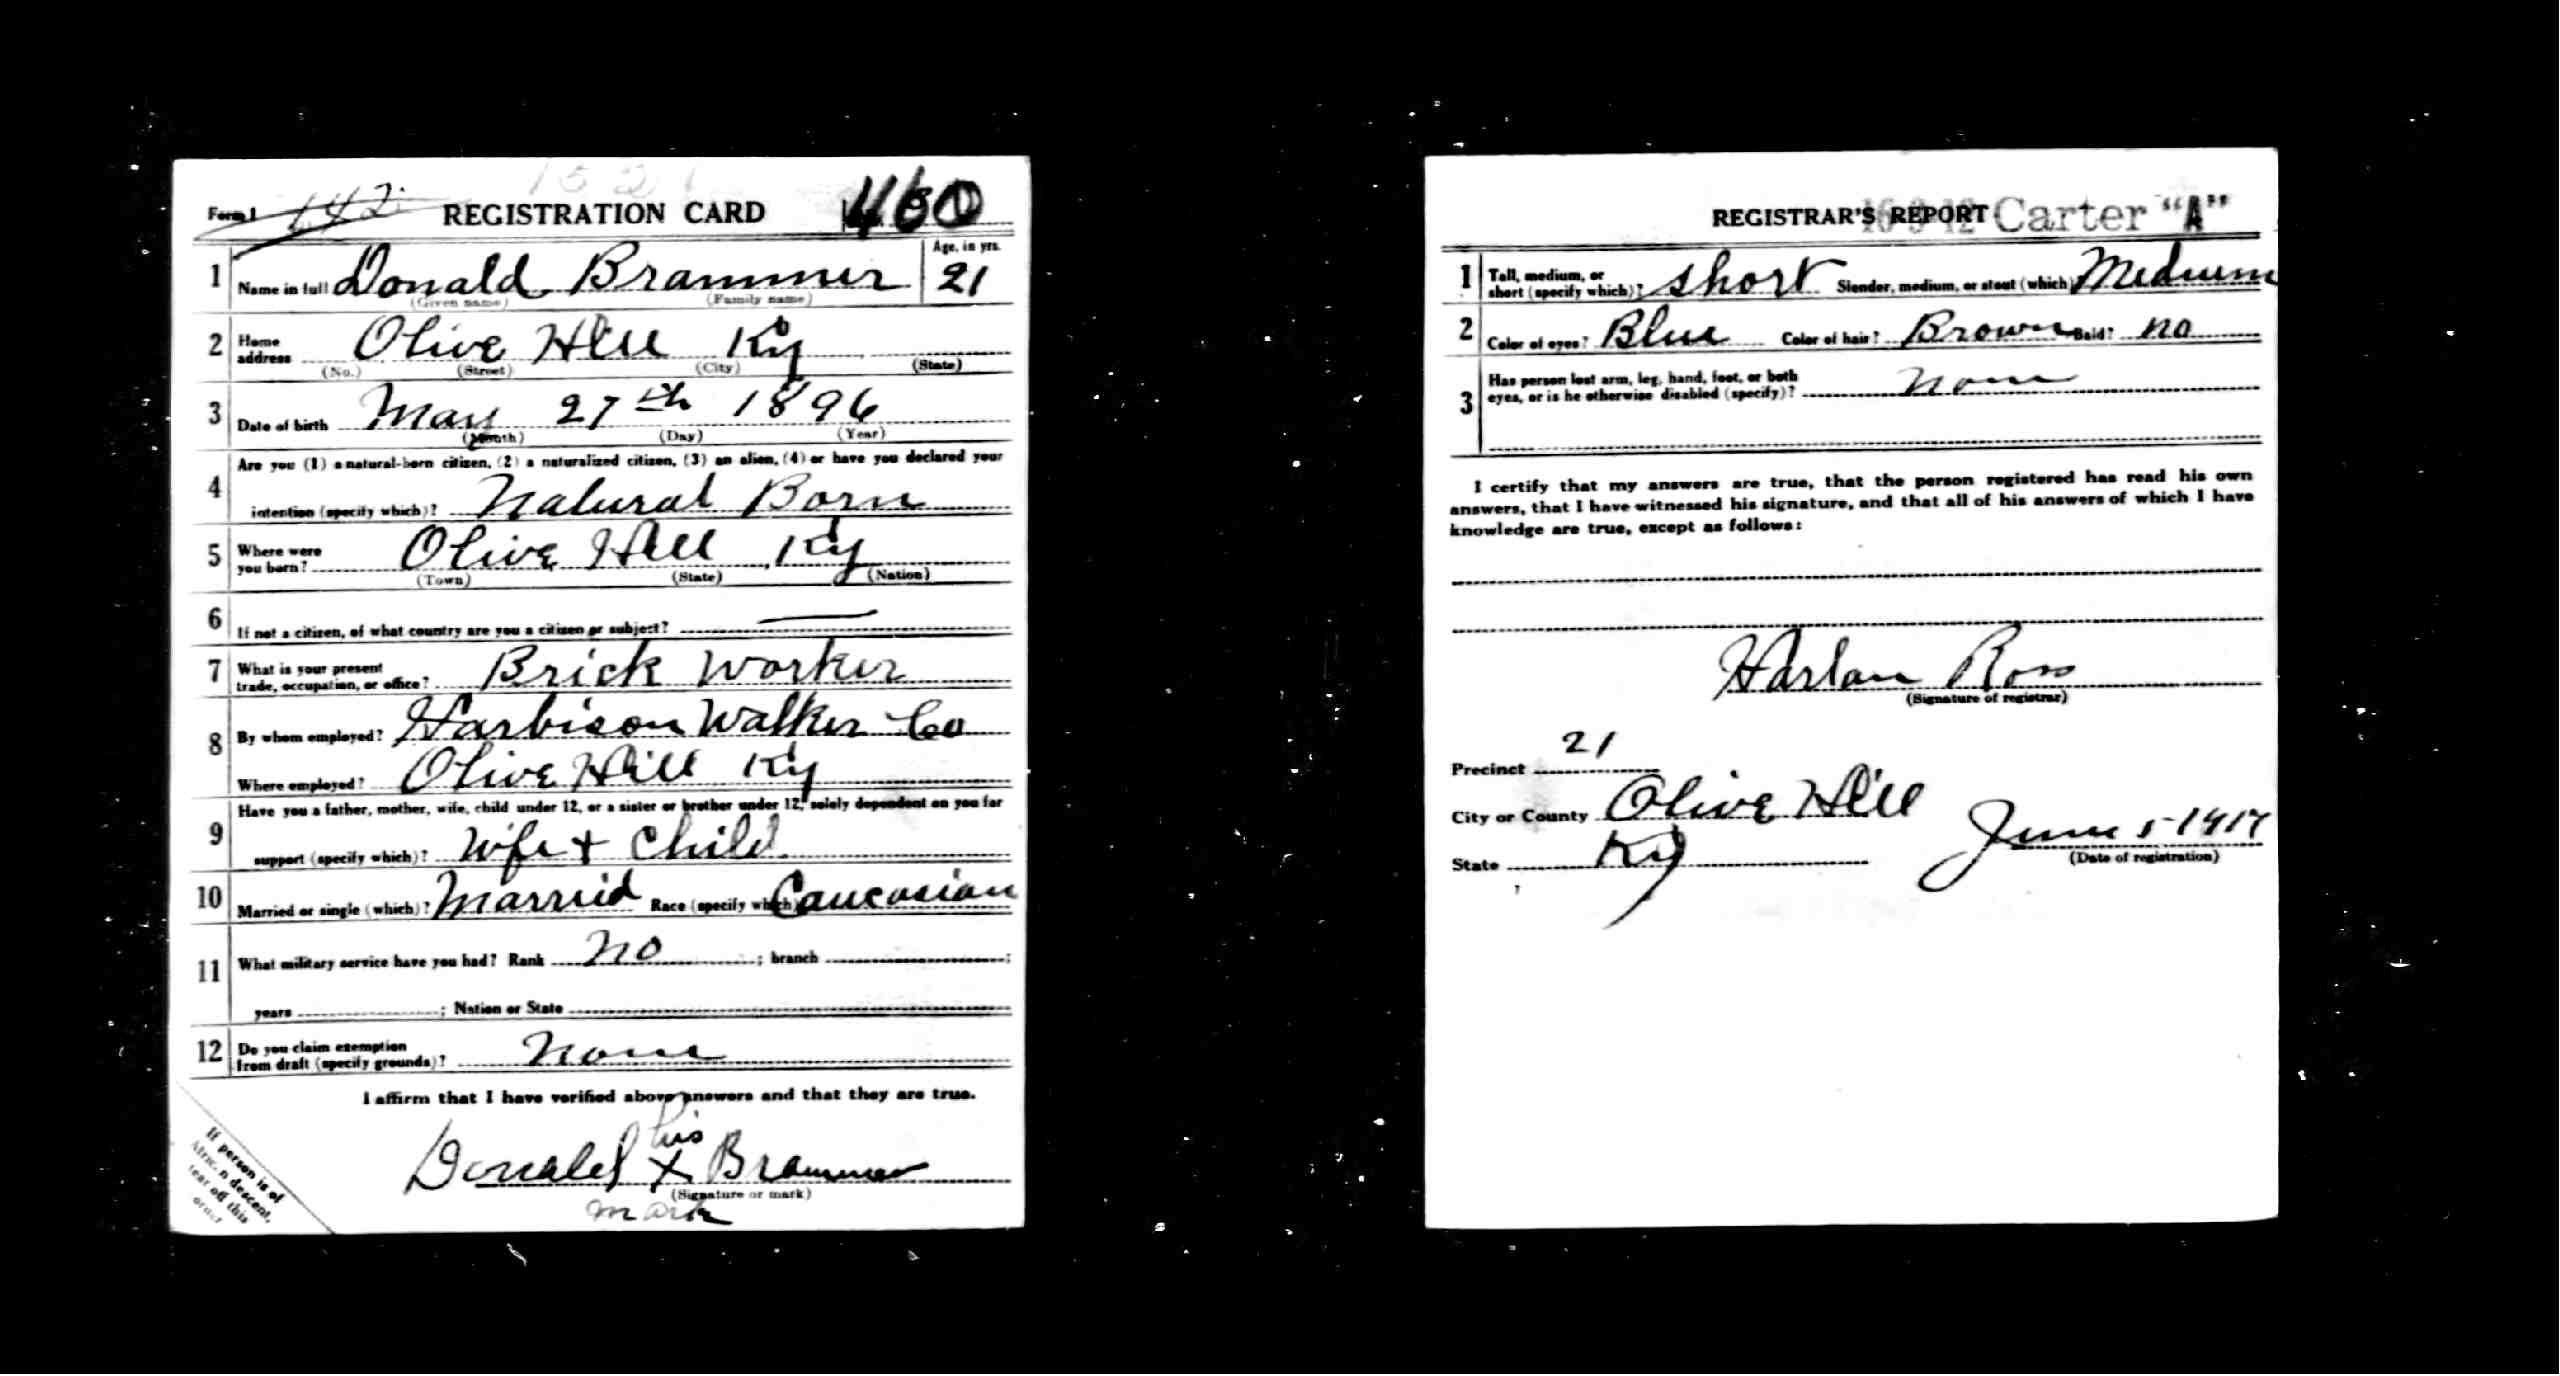 Form 1 142 REGISTRATION CARD 460
1 Name in full Donald Brammer Age, in yrs. 21
(Given name) (Family name)
2 Home address Olive Hill Ky
(No.) (Street) (City) (State)
3 Date of birth May 27th 1896
(Month) (Day) (Year)
4 Are you (1) a natural-born citizen, (2) a naturalized citizen, (3) an alien, (4) or have you declared your
intention (specify which)? Natural Born
5 Where were you born? Olive Hill, Ky
(Town) (State) (Nation)
6 If not a citizen, of what country are you a citizen or subject? —
7 What is your present trade, occupation, or office? Brick Worker
8 By whom employed? Harbison Walker Co
Where employed? Olive Hill Ky
9 Have you a father, mother, wife, child under 12, or a sister or brother under 12, solely dependent on you for
support (specify which)? Wife + Child
10 Married or single (which)? Married Race (specify which) Caucasian
11 What military service have you had? Rank no ; branch ;
years ; Nation or State
12 Do you claim exemption from draft (specify grounds)? None
I affirm that I have verified above answers and that they are true.
his
Donald X Brammer
(Signature or mark)
mark
If person is of
African descent,
tear off this
corner
REGISTRAR'S REPORT Carter "A"
1 Tall, medium, or short (specify which)? Short Slender, medium, or stout (which) Medium
2 Color of eyes? Blue Color of hair? Brown Bald? no
3 Has person lost arm, leg, hand, foot, or both
eyes, or is he otherwise disabled (specify)? None
I certify that my answers are true, that the person registered has read his own
answers, that I have witnessed his signature, and that all of his answers of which I have
knowledge are true, except as follows:
Harlan Ross
(Signature of registrar)
Precinct 21
City or County Olive Hill
State Ky June 5-1917
(Date of registration)